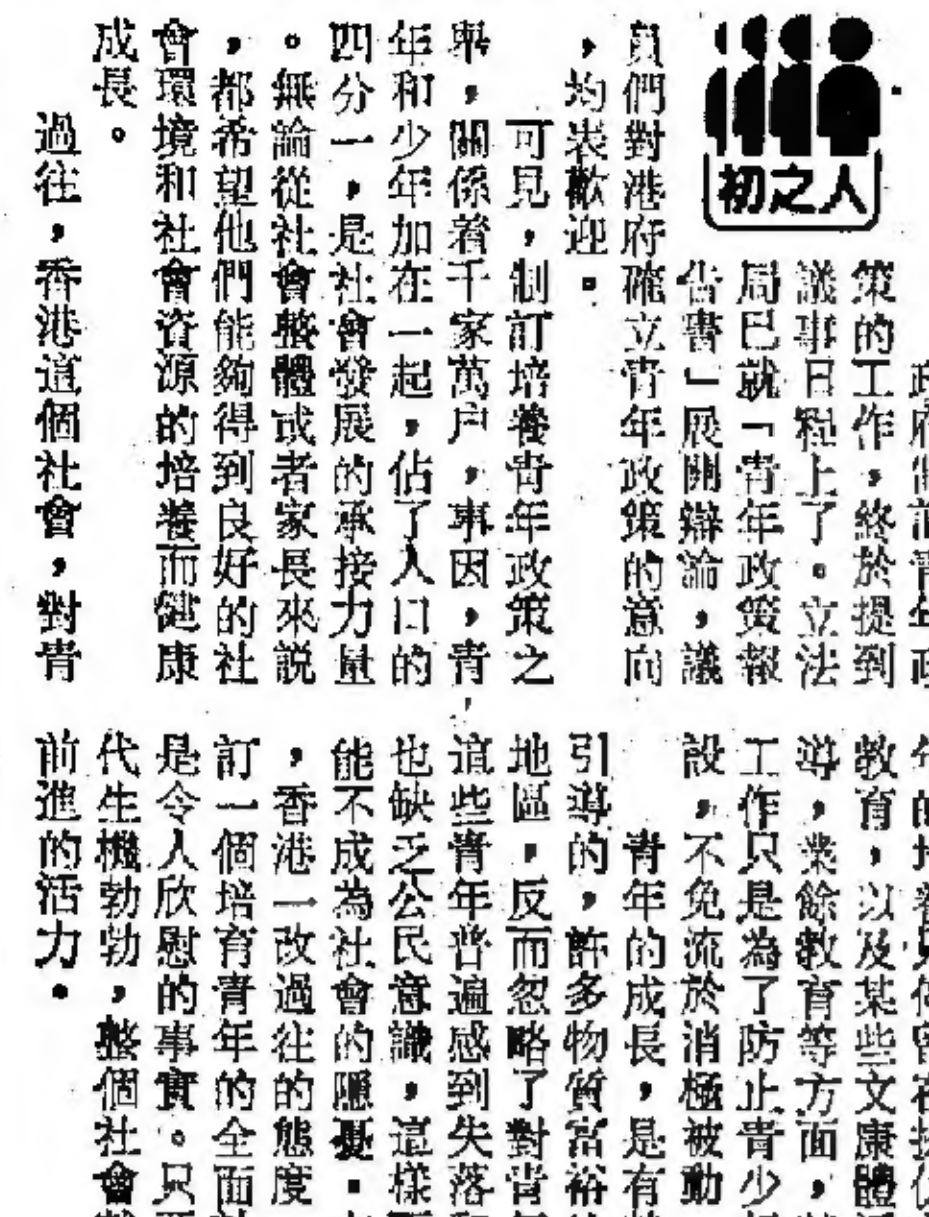 初之人
政府制訂青年政
策的工作，終於提到
議事日程上了。立法
局已就「青年政策報
告書」展開辯論，議
員們對港府確立青年政策的意向
，均表歡迎。
可見，制訂培養青年政策之
舉，關係着千家萬户，事因，青
年和少年加在一起，佔了人口的
四分一，是社會發展的承接力量
。無論從社會整體或者家長來説
，都希望他們能夠得到良好的社
會環境和社會資源的培養而健康
成長。
過往，香港這個社會，對青
年的培養只停留在
教育，以及某些文康體
導，業餘教育等方面，
工作只是為了防止青少
設，不免流於消極被動
青年的成長，是有
引導的，許多物質富裕
地區，反而忽略了對青
這些青年普遍感到失落
也缺乏公民意識，這樣
能不成為社會的隱憂。
，香港一改過往的態度
訂一個培育青年的全面
是令人欣慰的事實。只
代生機勃勃，整個社會
前進的活力。